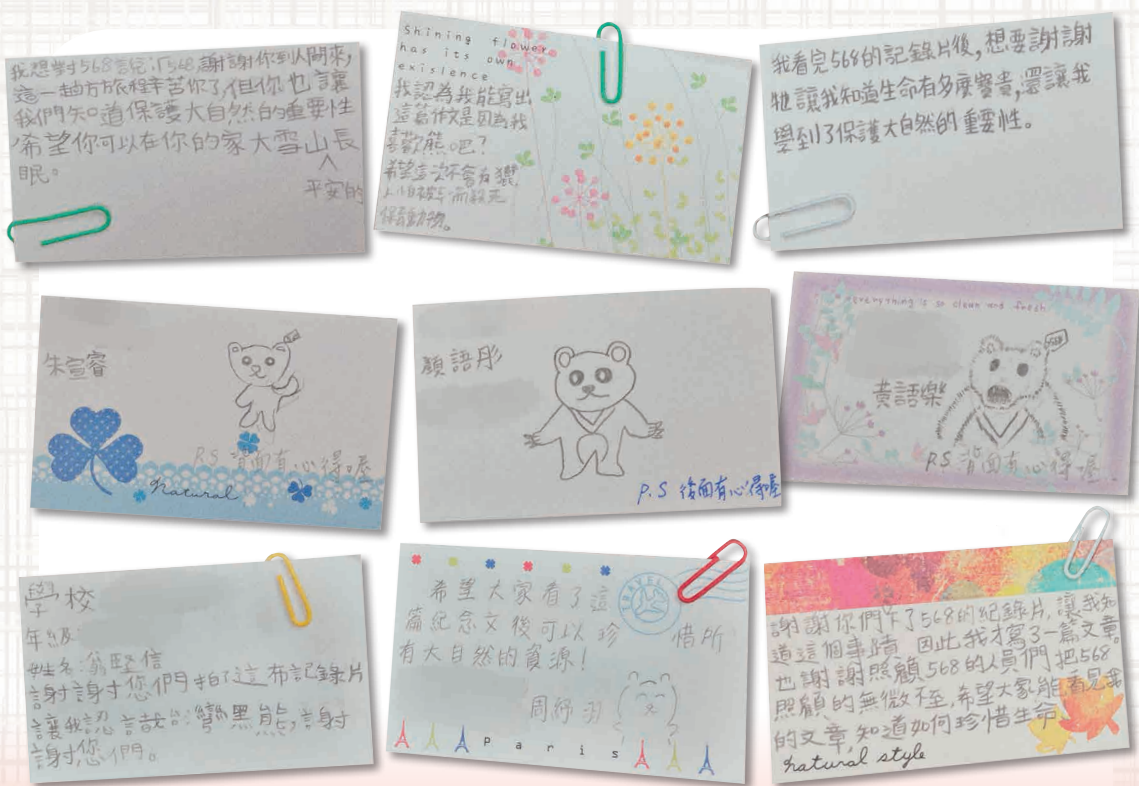 我想對568說:「568謝謝你到人間來,
這一趟方旅程辛苦你了,但你也讓
我們知道保護大自然的重要性
希望你可以在你的家大雪山長
眠。
平安的
Shining flower
has its own
existence
我認為我能寫出
這篇作文是因為我
喜歡熊吧?
希望這次不會有獵
人
保育動物。
我看完568的記錄片後,想要謝謝
牠讓我知道生命有多麼寶貴,還讓我
學到了保護大自然的重要性。
朱宣睿
P.S 背面有心得喔
natural
顏語彤
P.S 後面有心得喔
everything is so clean and fresh
568
黃語樂
P.S 背面有心得喔
學校
年級
姓名:翁堅信
謝謝您們拍了這布記錄片
讓我認識台灣黑熊,謝
謝您們。
TRAVEL
希望大家看了這
篇紀念文後可以珍惜所
有大自然的資源!
周紓羽
Paris
謝謝你們拍了568的紀錄片,讓我知
道這個事蹟,因此我才寫了一篇文章。
也謝謝照顧568的人員們把568
照顧的無微不至,希望大家能看見我
的文章,知道如何珍惜生命
natural style